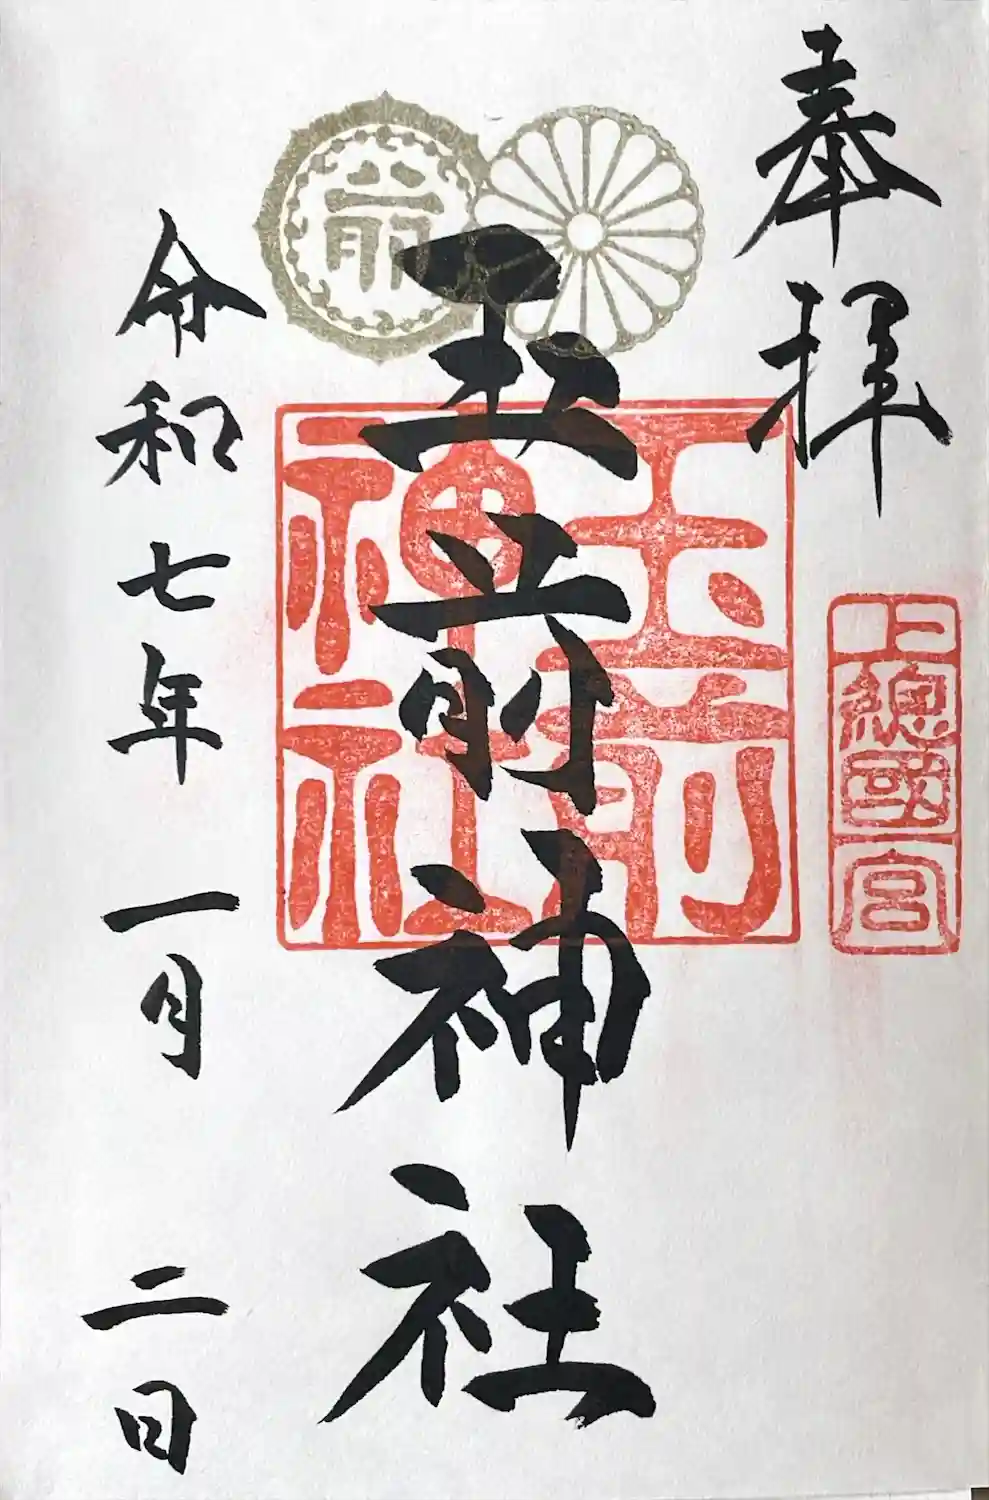 奉拝
上総國一宮
玉前神社
玉前神社
令和七年一月二日